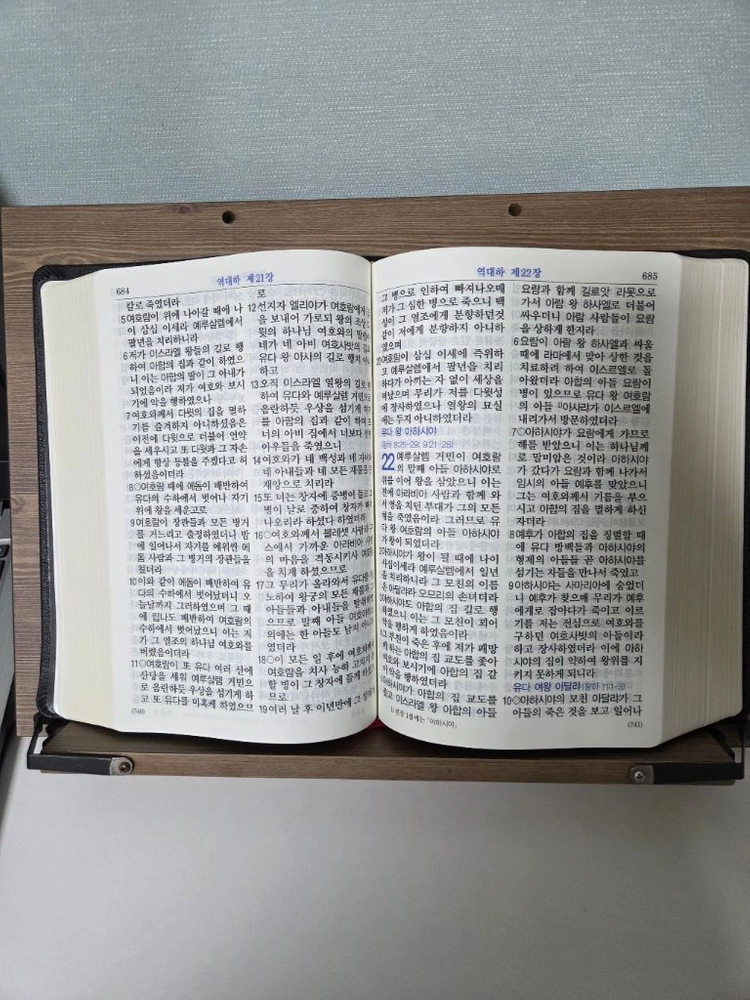 684
역대하 제21장
칼로 죽였더라
5여호람이 위에 나아갈 때에 나
이 삼십 이세라 예루살렘에서
팔년을 치리하니라
6저가 이스라엘 왕들의 길로 행
하여 아합의 집과 같이 하였으
니 이는 아합의 딸이 그 아내가
되었음이라 저가 여호와 보시
기에 악을 행하였으나
7여호와께서 다윗의 집을 멸하
기를 즐겨하지 아니하셨음은
이전에 다윗으로 더불어 언약
을 세우시고 또 다윗과 그 자손
에게 항상 등불을 주겠다고 허
하셨음이더라
8○여호람 때에 에돔이 배반하여
유다의 수하에서 벗어나 자기
위에 왕을 세운고로
9여호람이 장관들과 모든 병거
를 거느리고 출정하였더니 밤
에 일어나서 자기를 에워싼 에
돔 사람과 그 병거의 장관들을
쳤더라
10이와 같이 에돔이 배반하여 유
다의 수하에서 벗어났더니 오
늘날까지 그러하였으며 그 때
에 립나도 배반하여 여호람의
수하에서 벗어났으니 이는 저
가 그 열조의 하나님 여호와를
버렸음이더라
11○여호람이 또 유다 여러 산에
산당을 세워 예루살렘 거민으
로 음란하듯 우상을 섬기게 하
고 또 유다를 미혹케 하였으므
(740)
로
12선지자 엘리야가 여호람에게
을 보내어 가로되 왕의 조상
윗의 하나님 여호와의 말씀
네가 네 아비 여호사밧의 길과
유다 왕 아사의 길로 행치
하고
13오직 이스라엘 열왕의 길로
하여 유다와 예루살렘 거민
음란하듯 우상을 섬기게 하
를 아합의 집과 같이 하며
너의 아비 집에서 너보다
아우들을 죽였으니
14여호와가 네 백성과 네 자녀
네 아내들과 네 모든 재물을
재앙으로 치리라
15또 너는 창자에 중병이 들고
병이 날로 중하여 창자가 빠
나오리라 하셨다 하였더라
16○여호와께서 블레셋 사람과
스에서 가까운 아라비아 사람
의 마음을 격동시키사 여호람
을 치게 하셨으므로
17그 무리가 올라와서 유다를
노하여 왕궁의 모든 재물과
아들들과 아내들을 탈취하
으므로 말째 아들 여호아하스
외에는 한 아들도 남지 아니
였더라
18○이 모든 일 후에 여호와께서
여호람을 치사 능히 고치지
할 병이 그 창자에 들게 하셨
므로
19여러 날 후 이년만에 그 창자
역대하 제22장
685
그 병으로 인하여 빠져나오매
저가 그 심한 병으로 죽으니 백
성이 그 열조에게 분향하던것
같이 저에게 분향하지 아니하
였으며
20여호람이 삼십 이세에 즉위하
고 예루살렘에서 팔년을 치리
하다가 아끼는 자 없이 세상을
떠났으며 무리가 저를 다윗성
에 장사하였으나 열왕의 묘실
에는 두지 아니하였더라
유다 왕 아하시야
(왕하 8:25-29; 9:21-28)
22 예루살렘 거민이 여호람
의 말째 아들 아하시야로
위를 이어 왕을 삼았으니 이는
전에 아라비아 사람과 함께 와
서 영을 치던 부대가 그의 모든
형을 죽였음이라 그러므로 유
다 왕 여호람의 아들 아하시야
가 왕이 되었더라
2아하시야가 왕이 될 때에 나이
사십이세라 예루살렘에서 일년
을 치리하니라 그 모친의 이름
은 아달랴라 오므리의 손녀더라
3아하시야도 아합의 집 길로 행
하였으니 이는 그 모친이 꾀어
악을 행하게 하였음이라
4그 부친이 죽은 후에 저가 패망
케하는 아합의 집 교도를 좇아
여호와 보시기에 아합의 집 같
이 악을 행하였더라
5아하시야가 아합의 집 교도를
좇고 이스라엘 왕 아합의 아들
1) 대상 1절에는 「아하시야」
요람과 함께 길르앗 라못으로
가서 아람 왕 하사엘로 더불어
싸우더니 아람 사람들이 요람
을 상하게 한지라
6요람이 아람 왕 하사엘과 싸울
때에 라마에서 맞아 상한 것을
치료하려 하여 이스르엘로 돌
아왔더라 아합의 아들 요람이
병이 있으므로 유다 왕 여호람
의 아들 1)아사랴가 이스르엘에
내려가서 방문하였더라
7○아하시야가 요람에게 가므로
해를 받았으니 이는 하나님께
로 말미암은 것이라 아하시야
가 갔다가 요람과 함께 나가서
임시의 아들 예후를 맞았으니
그는 여호와께서 기름을 부으
시고 아합의 집을 멸하게 하신
자더라
8예후가 아합의 집을 징벌할 때
에 유다 방백들과 아하시야의
형제의 아들들 곧 아하시야를
섬기는 자들을 만나서 죽였고
9아하시야는 사마리아에 숨었더
니 예후가 찾으매 무리가 예후
에게로 잡아다가 죽이고 이르
기를 저는 전심으로 여호와를
구하던 여호사밧의 아들이라
하고 장사하였더라 이에 아하
시야의 집이 약하여 왕위를 지
키지 못하게 되니라
유다 여왕 아달랴(왕하 11:1-3)
10○아하시야의 모친 아달랴가 그
아들의 죽은 것을 보고 일어나
(741)